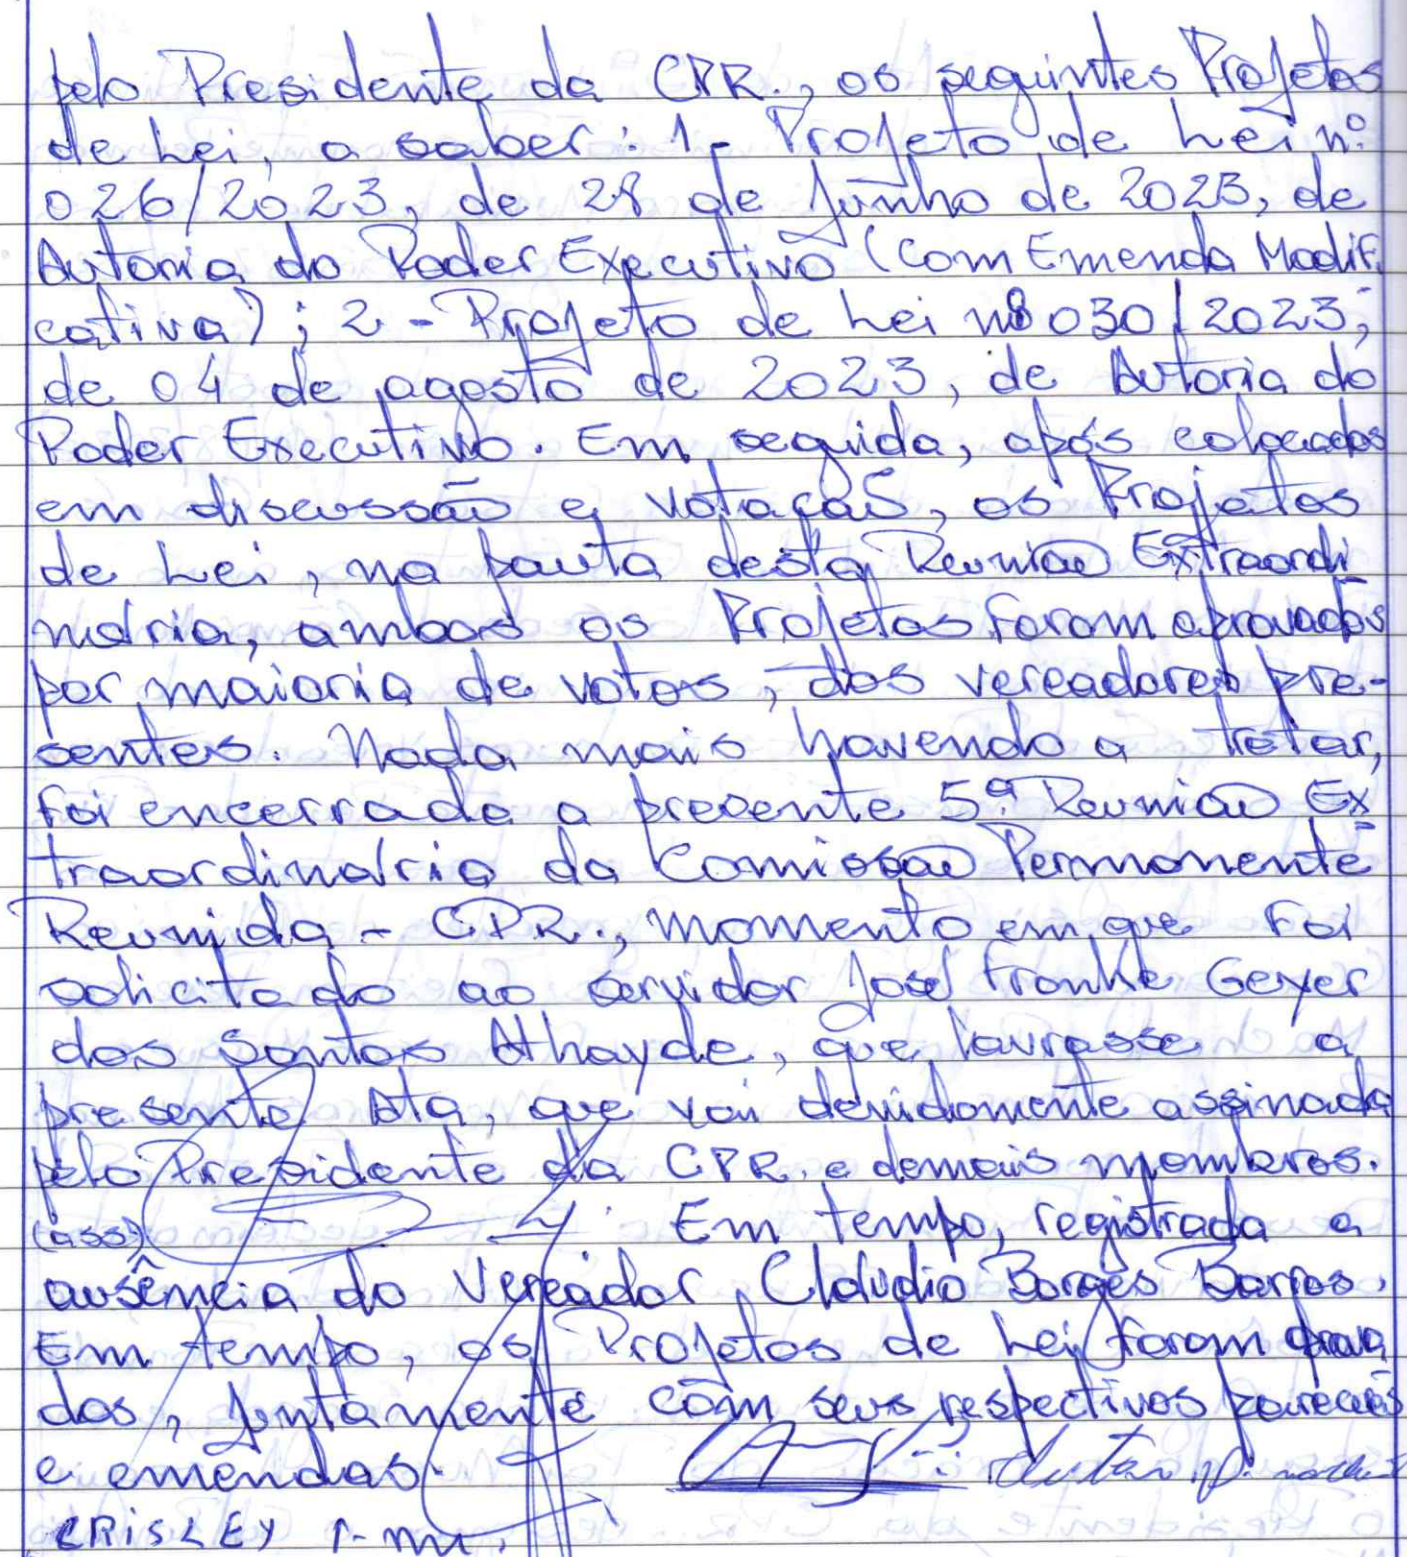 pelo Presidente da CPR., os seguintes Projetos
de Lei, a saber: 1- Projeto de Lei nº
026/2023, de 28 de Junho de 2023, de
Autoria do Poder Executivo (Com Emenda Modifi
cativa); 2- Projeto de Lei nº 030/2023,
de 04 de agosto de 2023, de Autoria do
Poder Executivo. Em seguida, após colocados
em discussão e votação, os Projetos
de Lei, na pauta desta Reunião Extraordi
nária, ambos os Projetos foram aprovados
por maioria de votos, dos vereadores pre-
sentes. Nada mais havendo a tratar,
foi encerrada a presente 5ª Reunião Ex
traordinária da Comissão Permanente
Reunida - CPR., momento em que foi
solicitado ao servidor José Franke Geyer
dos Santos Athayde, que lavrasse a
presente Ata, que vai devidamente assinada
pelo Presidente da CPR. e demais membros.
(ass) Em tempo, registrada a
ausência do Vereador, Cláudio Borges Barros.
Em tempo, os Projetos de Lei foram aprova
dos, juntamente com seus respectivos pareceres
e emendas.
CRISLEY